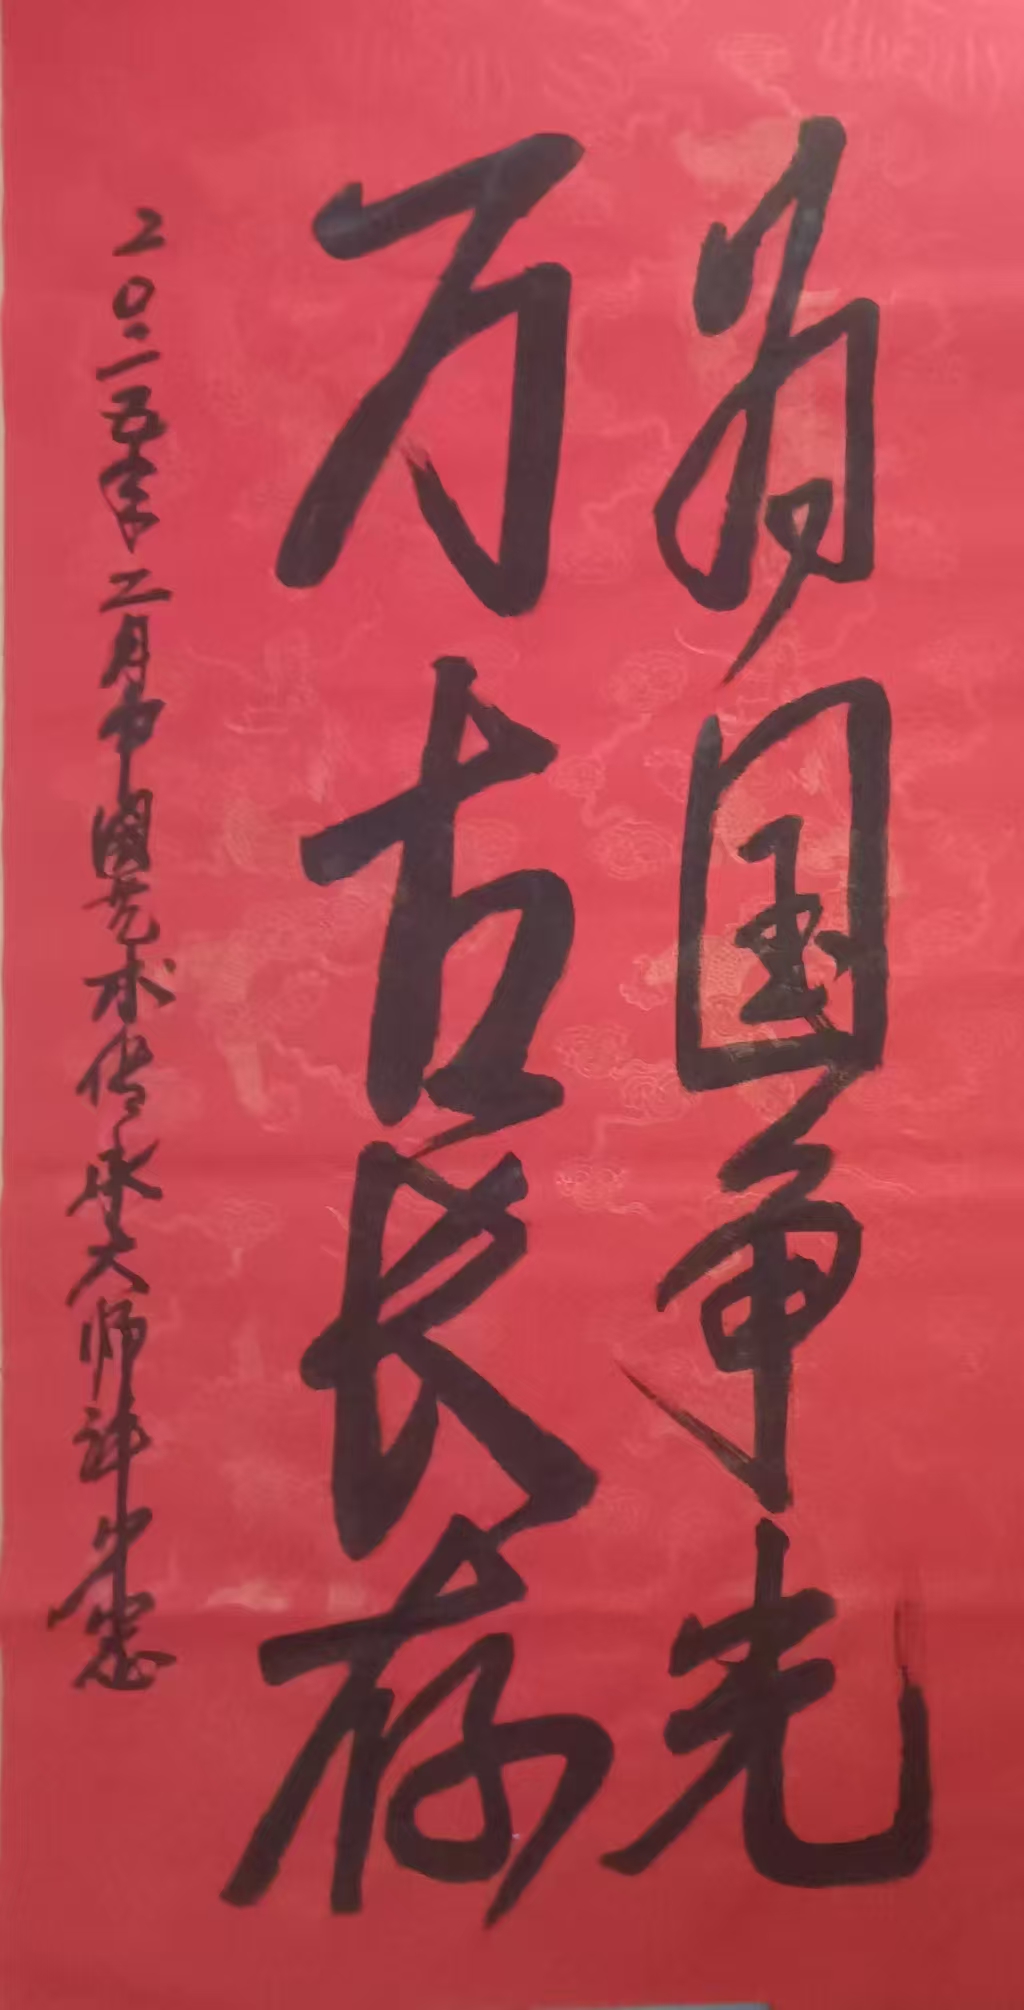 为国争光
万古长存
二〇二五年二月中國艺术传承大师许光忠